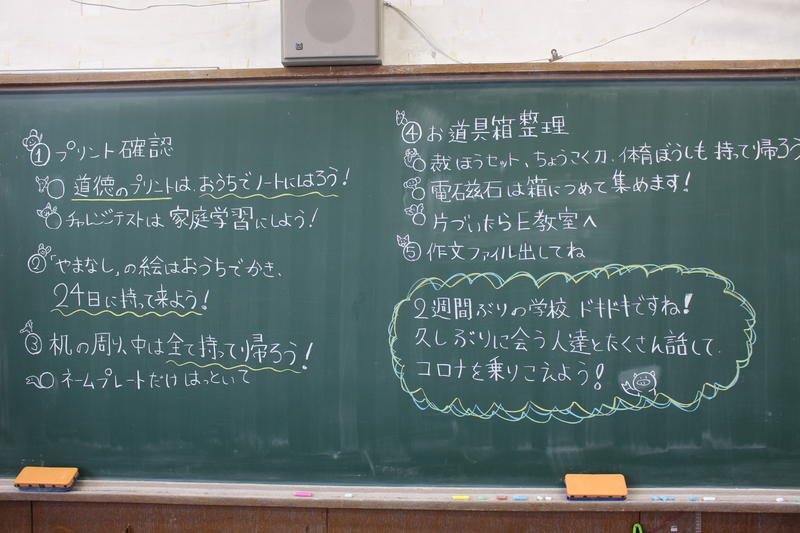 ① プリント確認
○ 道徳のプリントは、おうちでノートにはろう!
○ チャレンジテストは 家庭学習にしよう!
② 「やまなし」の絵はおうちでかき、
24日に持って来よう!
③ 机の周り、中は全て持って帰ろう!
○ ネームプレートだけ はっといて
④ お道具箱整理
○ 裁ほうセット、ちょうこく刀、体育ぼうしも 持って帰ろう
○ 電石玆石は箱につめて 集めます!
○ 片づいたらE教室へ
⑤ 作文ファイル出してね
2週間ぶりの学校 ドキドキですね!
久しぶりに会う人達とたくさん話して、
コロナを乗りこえよう!